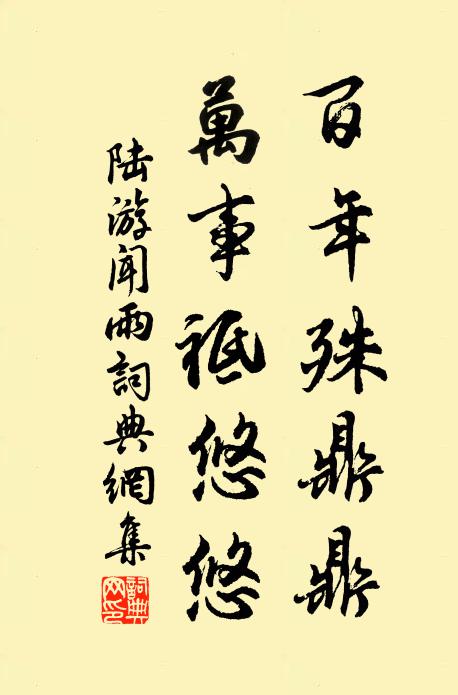 百年殊鼎鼎
萬事祗悠悠
陆游闻雨詞典網集
詞典